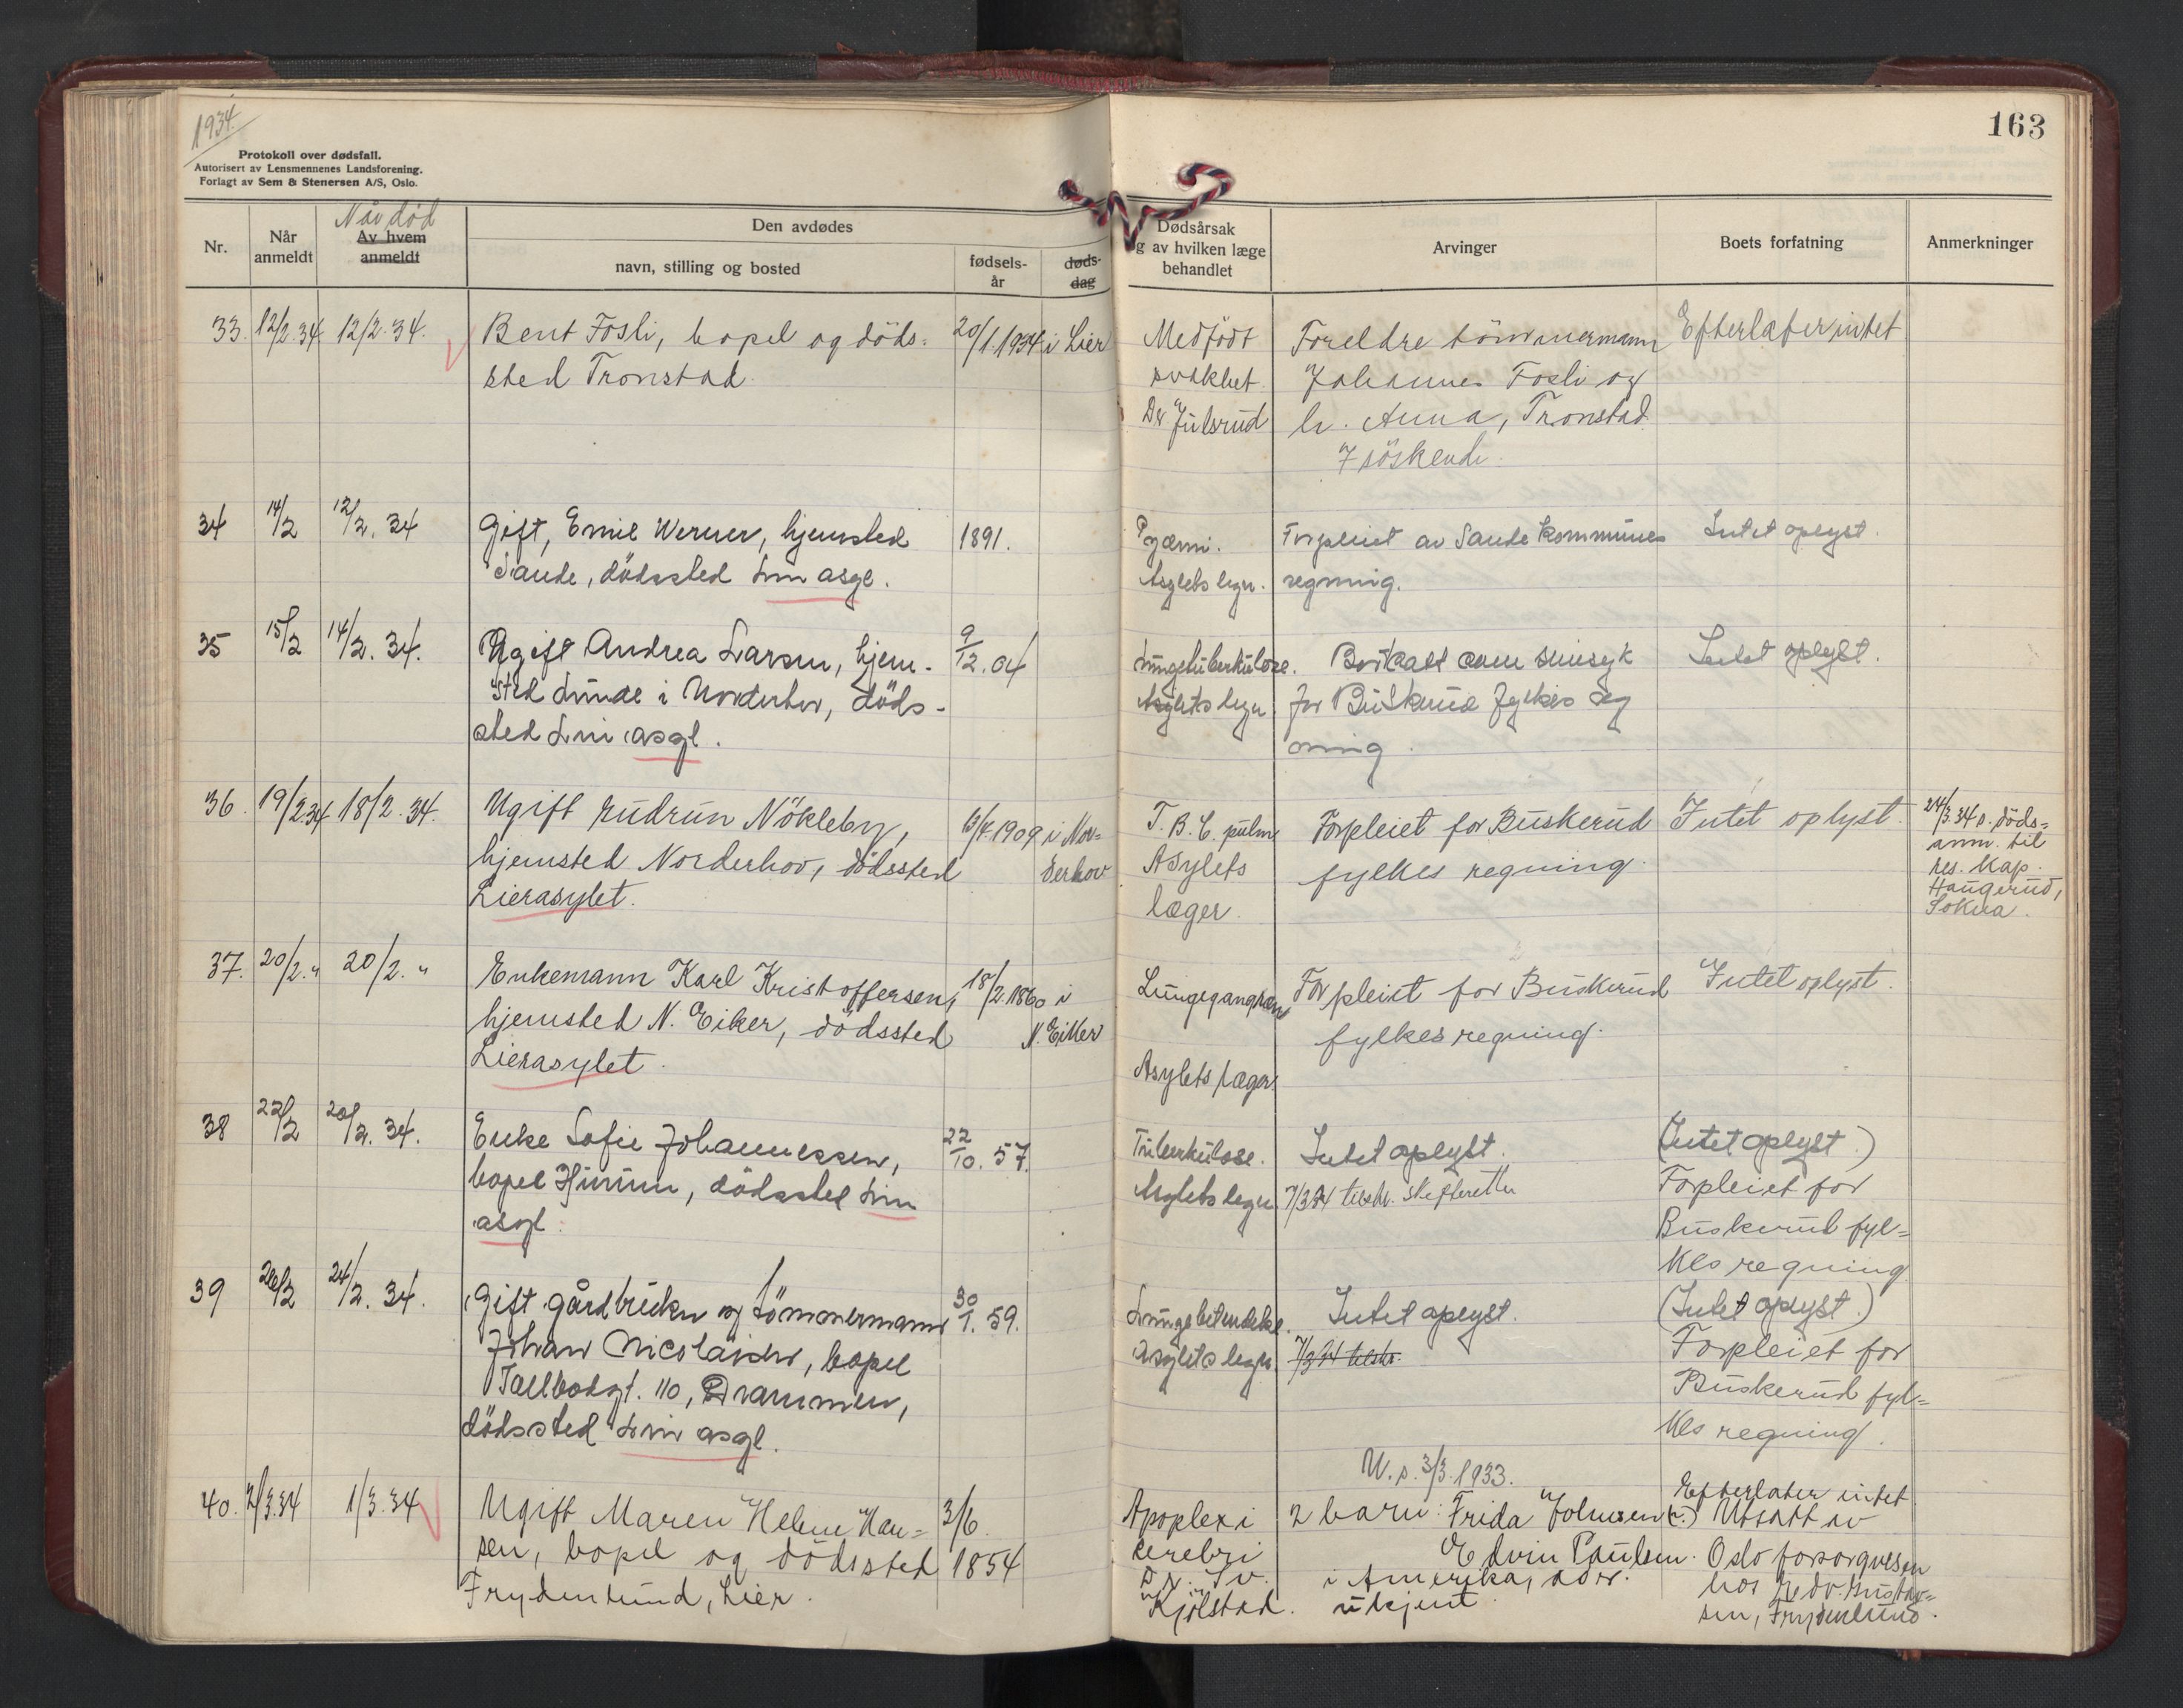 1934.
163
Protokoll over dødsfall.
Autorisert av Lensmennenes Landsforening.
Forlagt av Sem & Stenersen A/S, Oslo.
Nr.
Når anmeldt
Når død
Av hvem anmeldt
Den avdødes
navn, stilling og bosted
fødsels-
år
døds-
dag
Dødsårsak
og av hvilken læge
behandlet
Arvinger
Boets forfatning
Anmerkninger
33. 12/2.34 12/2.34. Bent Fosli, bopel og döds- 20/1.1934 i Lier
sted Tronstad.
Medfödt
svakhet.
Dr Julsrud
Foreldre tömmermann
Johannes Fosli og
h. Anna, Tronstad.
7 söskende.
Efterlater intet
34 14/2 12/2. 34 Gift, Emil Werner, hjemsted 1891.
Sande, dödssted Lier asyl.
Pyæmi.
Asylets leger.
Forpleiet av Sande kommunes
regning.
Intet oplyst.
35 15/2 14/2. 34. Ugift Andrea Larsen, hjem- 9/12. 04
sted Lunde i Norderhov, döds-
sted Lier asyl.
Lungetuberkulose.
Asylets leger
Bortsatt som sinsyk
for Buskerud fylkes reg
ning.
Intet oplyst.
36. 19/2 34 18/2. 34. Ugift Gudrun Nökleby, 6/4.1909 i Nor-
hjemsted Norderhov, dödssted derhov
Lierasylet.
T. B. C. pulm
Asylets
læger.
Forpleiet for Buskerud
fylkes regning.
Intet oplyst.
24/3.34 s. döds-
anm. til
res. kap.
Haugerud,
Sokna.
37. 20/2. " 20/2. " Enkemann Karl Kristoffersen, 18/2.1860 i
hjemsted N. Eiker, dödssted N. Eiker
Lierasylet.
Lungegangræne
Asylets læger.
Forpleiet for Buskerud
fylkes regning.
Intet oplyst.
38 22/2 20/2. 34. Enke Sofie Johannessen, 22/10. 57.
bopel Hurum, dödssted Lier
asyl.
Tuberkulose.
Asylets leger
Intet oplyst.
7/3 34 tilskr. skifteretten
(Intet oplyst.)
Forpleiet for
Buskerud fyl=
kes regning
39 26/2 24/2. 34. Gift gårdbruker og tömmermann 30/1. 59.
Johan Nicolaisen, bopel
Tollbodgt. 110, Drammen,
dödssted Lier asyl.
Lungebetendelse.
Asylets leger.
Intet oplyst.
7/3 34 tilskr.
(Intet oplyst.)
Forpleiet for
Buskerud fyl=
kes regning.
40. 2/3.34 1/3.34 Ugift Maren Helene Han= 3/6.
sen, bopel og dödssted 1854
Frydenlund, Lier.
Apoplexi
cerebri
Dr. Sv.
Kjölstad.
U. s. 3/3.1933.
2 barn: Frida Johnsen
Edvin Paulsen.
i Amerika, adr.
ukjent.
Efterlater intet
Utsatt av
Oslo forsorgvesen
hos Hedv. Gustav=
sen, Frydenlund.